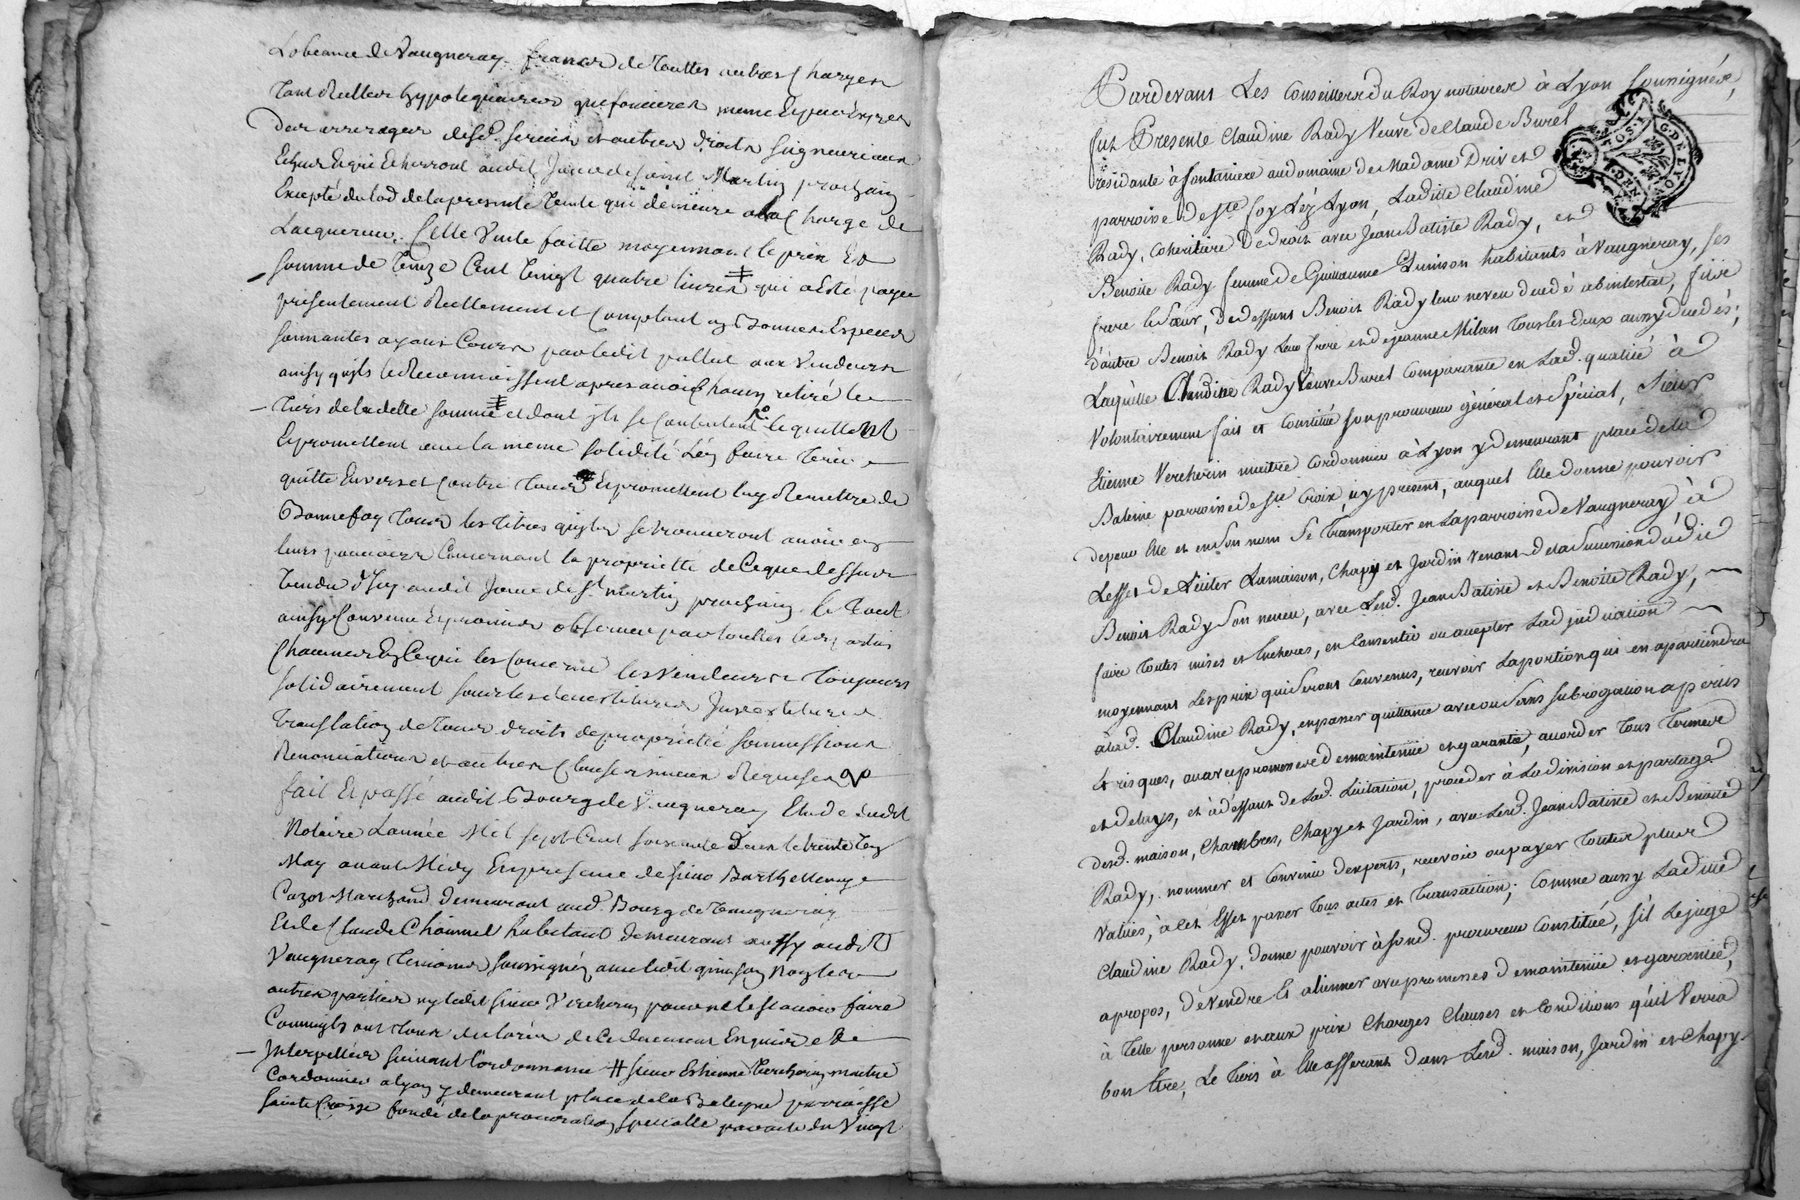 de Vaugneray. francs de touttes autres Charges
tant Reelles hypotequaires que foncieres même Exprès
des arrerages desd. servis et autres droits seigneuriaux
Echus Et qui Echerront audit Jour de saint Martin prochain
Excepté du lod de la presente Vente qui demeure ala Charge de
Lacquereur. Cette Vente faitte moyennant le prix Et
somme de Cent Vingt quatre livres qui a Esté payée
presentement Reellement et Comptant en Bonnes Especes
sonnantes ayant Cours par ledit aux Vendeurs
ainsy quils le Reconnoissent apres avoir Chacun retiré le
tiers de ladette somme et dont ils se Contentent le quittent
Epromettent avec la meme solidité Len faire tenir
quitte Envers et Contre tous Epromettent luy Remettre de
Bonnefoy tous les titres quils se trouveront avoir en
leurs pouvoirs Concernant la proprietté de Ceque dessus
Vendu dicy audit Jour de St. Martin prochain. le tout
ainsy Convenu Epromis observer par touttes les parties
Chacunes En Ce qui les Concerne les Vendeurs Toujours
solidairement sous les devestitures Investitures
Translation de tous droits de proprietté soumissions
Renonciations et autres Clauses Requises
fait Et passé audit Bourg de Vaugneray Etude dudit
Notaire Lannée Mil sept Cent soixante deux le trente
May avant Midy En presence de sieur Barthellemy
Marchand demeurant aud. Bourg de Vaugneray
Et de Claude Chommel habitant demeurant aussy audit
Vaugneray temoins soussignez avec ledit non les
autres parties ny ledit sieur Vercherin pour ne le scavoir faire
Comme ils ont tous declaré de Ce Enquis et de
Interpellés suivant l'ordonnance # sieur Estienne Vercherin maitre
Cordonnier a lyon y demeurant place de la Baleyne parroisse
Sainte Croix fondé de la procuration specialle du Vingt
Pardevant Les Conseillers du Roy notaires à Lyon soussignés,
fut Presente Claudine Rady Veuve de Claude Burel
résidante à fontaniere au domaine de Madame Drivet
parroisse de Ste. foy Léz Lyon, Laditte Claudine
Rady, Coheritiere De droit avec Jean Batiste Rady, et
Benoite Rady femme de Guillaume habitants à Vaugneray, ses
frere et Sœur, de deffunt Benoit Rady leur neveu décedé abintestat, fils
d'autre Benoit Rady Leur frere et de jeanne Milan tous les deux aussy decedés;
Laquelle Claudine Rady Veuve Burel Comparante en Lad. qualité à
Volontairement fait et Constitué son procureur général et Spécial, Sieur
Etienne Vercherin maitre Cordonnier à Lyon y demeurant place de la
Baleine parroisse de Ste. Croix icy present, auquel Elle donne pouvoir
de pour Elle et en Son nom Se Transporter en La parroisse de Vaugneray à
Leffet de Liciter La maison, Chapy et Jardin venant de la Succession dudit
Benoit Rady Son neveu, avec Lesd. Jean Batiste et Benoite Rady,
faire Toutes mises et Encheres, en Consentir ou accepter Ladjudication
moyennant Les prix qui Seront Convenus, recevoir La portion qui en apartiendra
à lad. Claudine Rady, en passer quittance avec ou Sans subrogation a perils
et risques, ou avec promesse de maintenue et garantie, accorder tous Termes
et delays, et à deffaut de Lad. Licitation, proceder à La division et partage
desd. maison, Chambres, Chapy et Jardin, avec Lesd. Jean Batiste et Benoite
Rady, nommer et Convenir d'experts, recevoir ou payer Toutes plus
Values, à Cet Effet passer Tous actes et Transaction; Comme aussy Laditte
Claudine Rady, donne pouvoir à Sond. procureur Constitué, s'il Le juge
a propos, de Vendre Et alienner avec promesses de maintenüe et garantie,
à Telle personne et aux prix Charges Clauses et Conditions qu'il Verra
bon Etre, Le Tiers à Elle afferant dans Lesd. maison, Jardin et Chapy